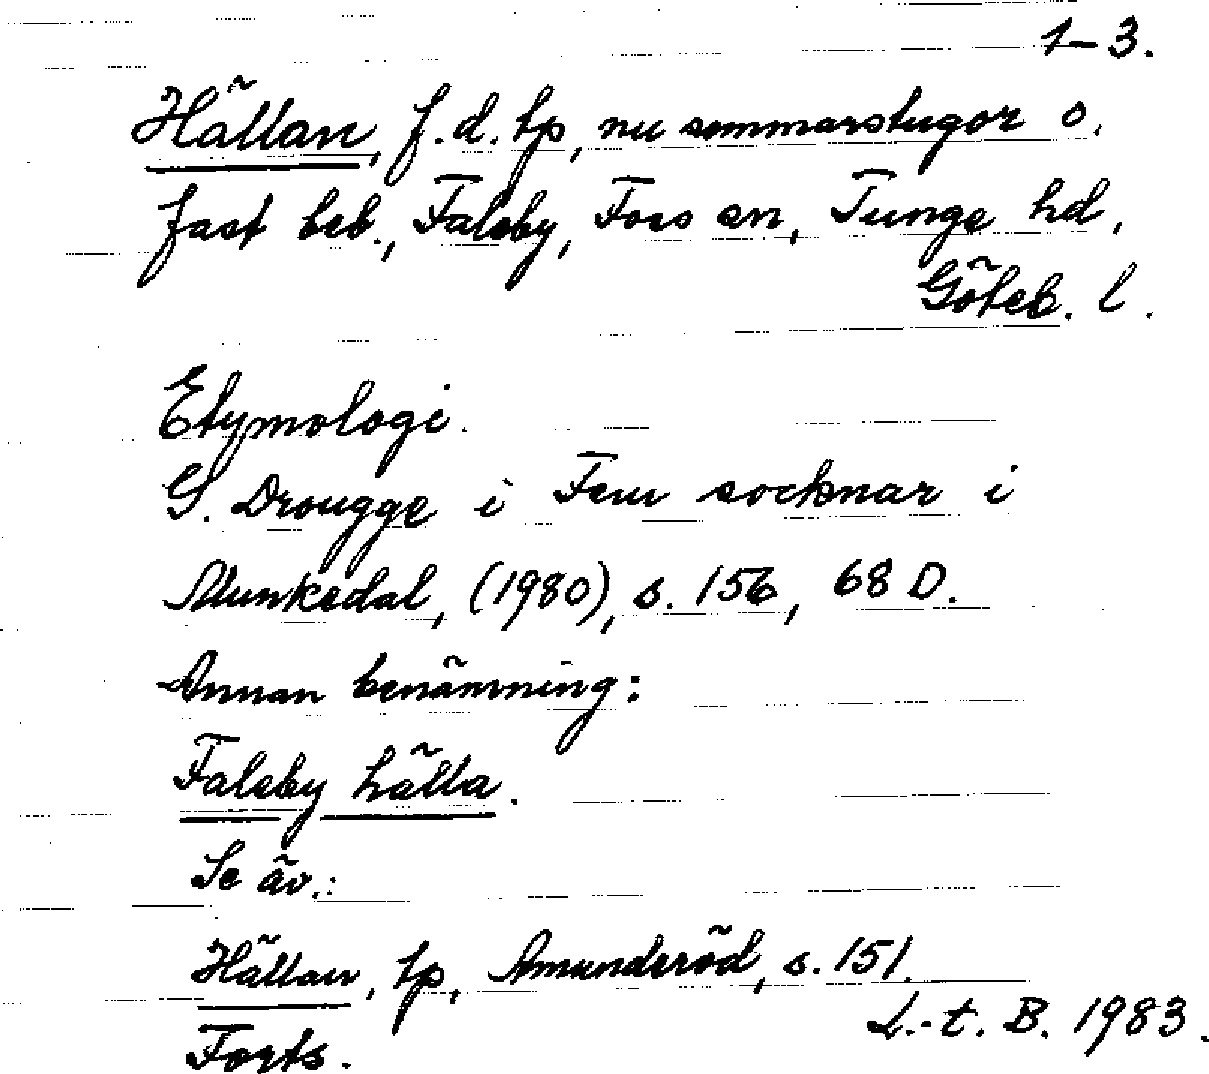 1-3.
Hällan, f.d. tp, nu sommarstugor o.
fast beb., Faleby, Foss sn, Tunge hd,
Göteb. l.
Etymologi.
G. Drougge i Fem socknar i
Munkedal, (1980), s. 156, 68 D.
Annan benämning:
Faleby hälla.
Se äv.:
Hällan, tp, Amunderöd, s. 151.
L.-t. B. 1983.
Forts.